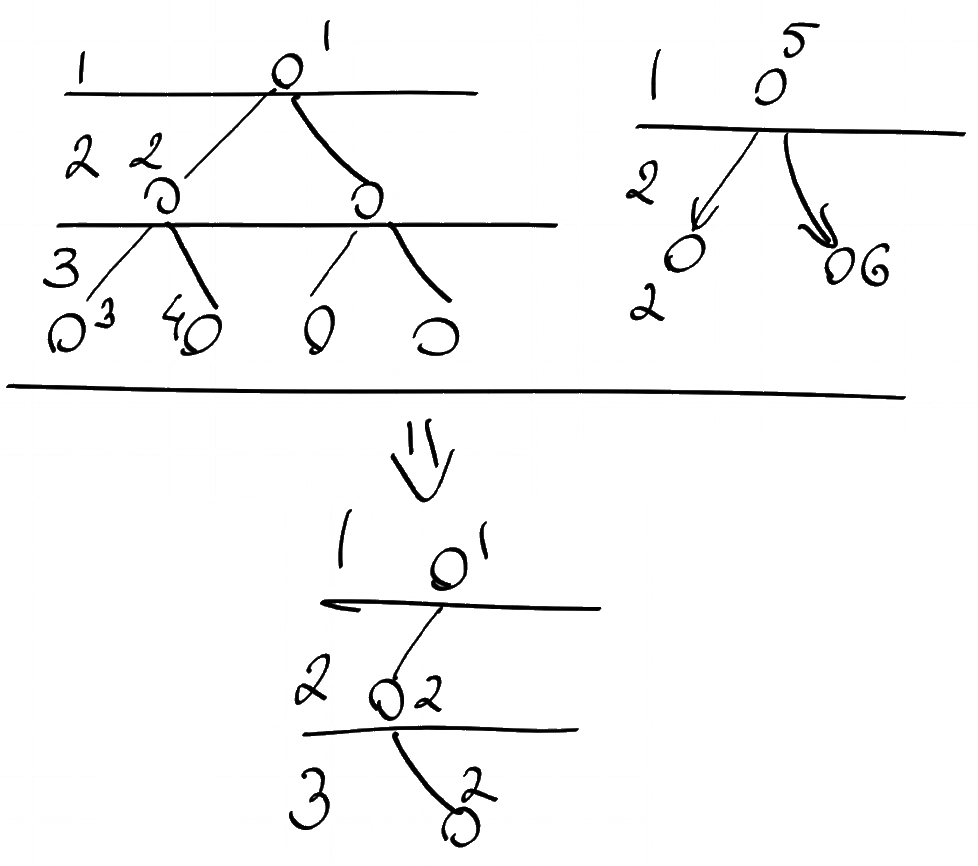 1 1
2 2
3
3 4
1 5
2
6
2
1 1
2 2
3 2